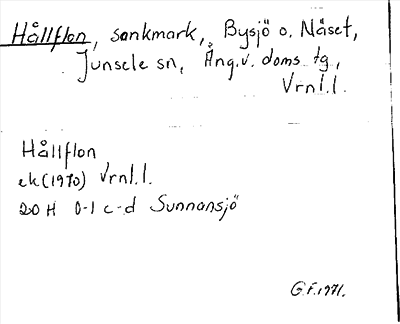 Hållflon, sankmark, Bysjö o. Näset,
Junsele sn, Ång.v. doms tg,
Vrnl.l.
Hållflon
ek(1970) Vrnl.l.
20 H 0-1 c-d Sunnansjö
G.F. 1971.